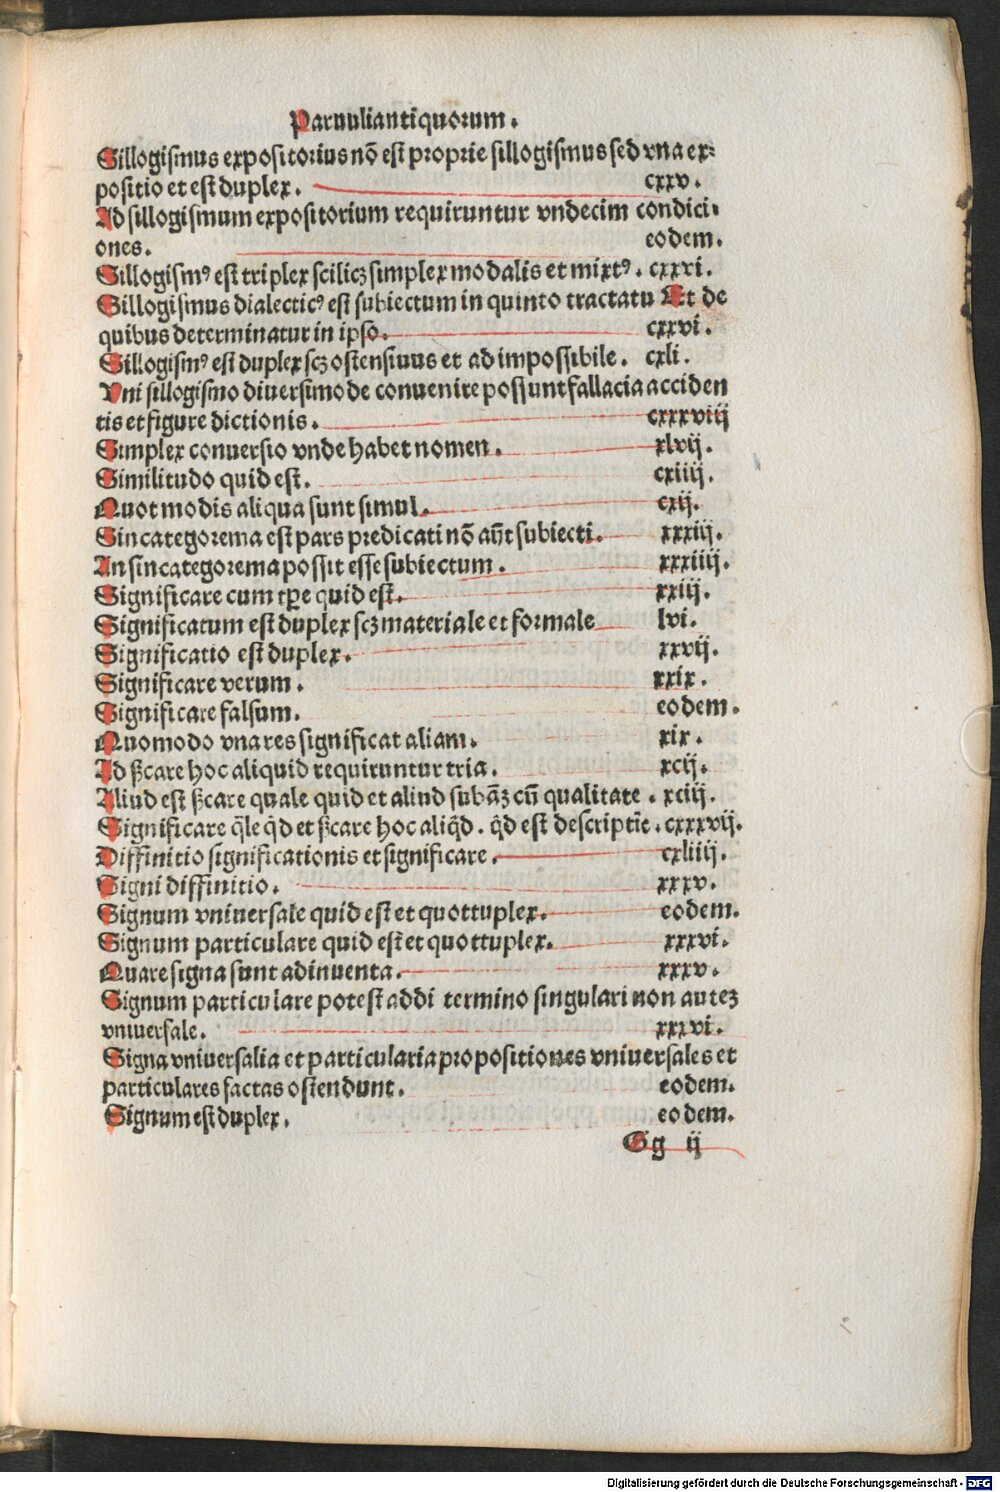 Paruuli antiquorum.
Sillogismus expositorius nõ est proprie sillogismus sed vna ex⸗
positio et est duplex. cxxv.
Ad sillogismum expositorium requiruntur vndecim condici⸗
ones. eodem.
Sillogismꝰ est triplex scilicꝫ simplex modalis et mixtꝰ. cxxvi.
Sillogismus dialecticꝰ est subiectum in quinto tractatu Et de
quibus determinatur in ipso. cxxvi.
Sillogismꝰ est duplex scꝫ ostensiuus et ad impossibile. cxli.
Vni sillogismo diuersimode conuenire possunt fallacia acciden
tis et figure dictionis. cxxxviij
Simplex conuersio vnde habet nomen. xlvij.
Similitudo quid est. cxiiij.
Quot modis aliqua sunt simul. cxij.
Sincategorema est pars predicati nõ aũt subiecti. xxxiij.
An sincategorema possit esse subiectum. xxxiiij.
Significare cum tꝑe quid est. xxiij.
Significatum est duplex scꝫ materiale et formale lvi.
Significatio est duplex. xxvij.
Significare verum. xxix.
Significare falsum. eodem.
Quomodo vna res significat aliam. xix.
Ad ẞcare hoc aliquid requiruntur tria. xcij.
Aliud est ẞcare quale quid et aliud subãꝫ cũ qualitate. xciij.
Significare q̃le q̇d et ẞcare hoc aliq̇d. q̇d est descriptiẽ. cxxxvij.
Diffinitio significationis et significare. cxliiij.
Signi diffinitio. xxxv.
Signum vniuersale quid est et quottuplex. eodem.
Signum particulare quid est et quottuplex. xxxvi.
Quare signa sunt adinuenta. xxxv.
Signum particulare potest addi termino singulari non autez
vniuersale. xxxvi.
Signa vniuersalia et particularia propositiones vniuersales et
particulares factas ostendunt. eodem.
Signum est duplex. eodem.
Gg ij
Digitalisierung gefördert durch die Deutsche Forschungsgemeinschaft - DFG